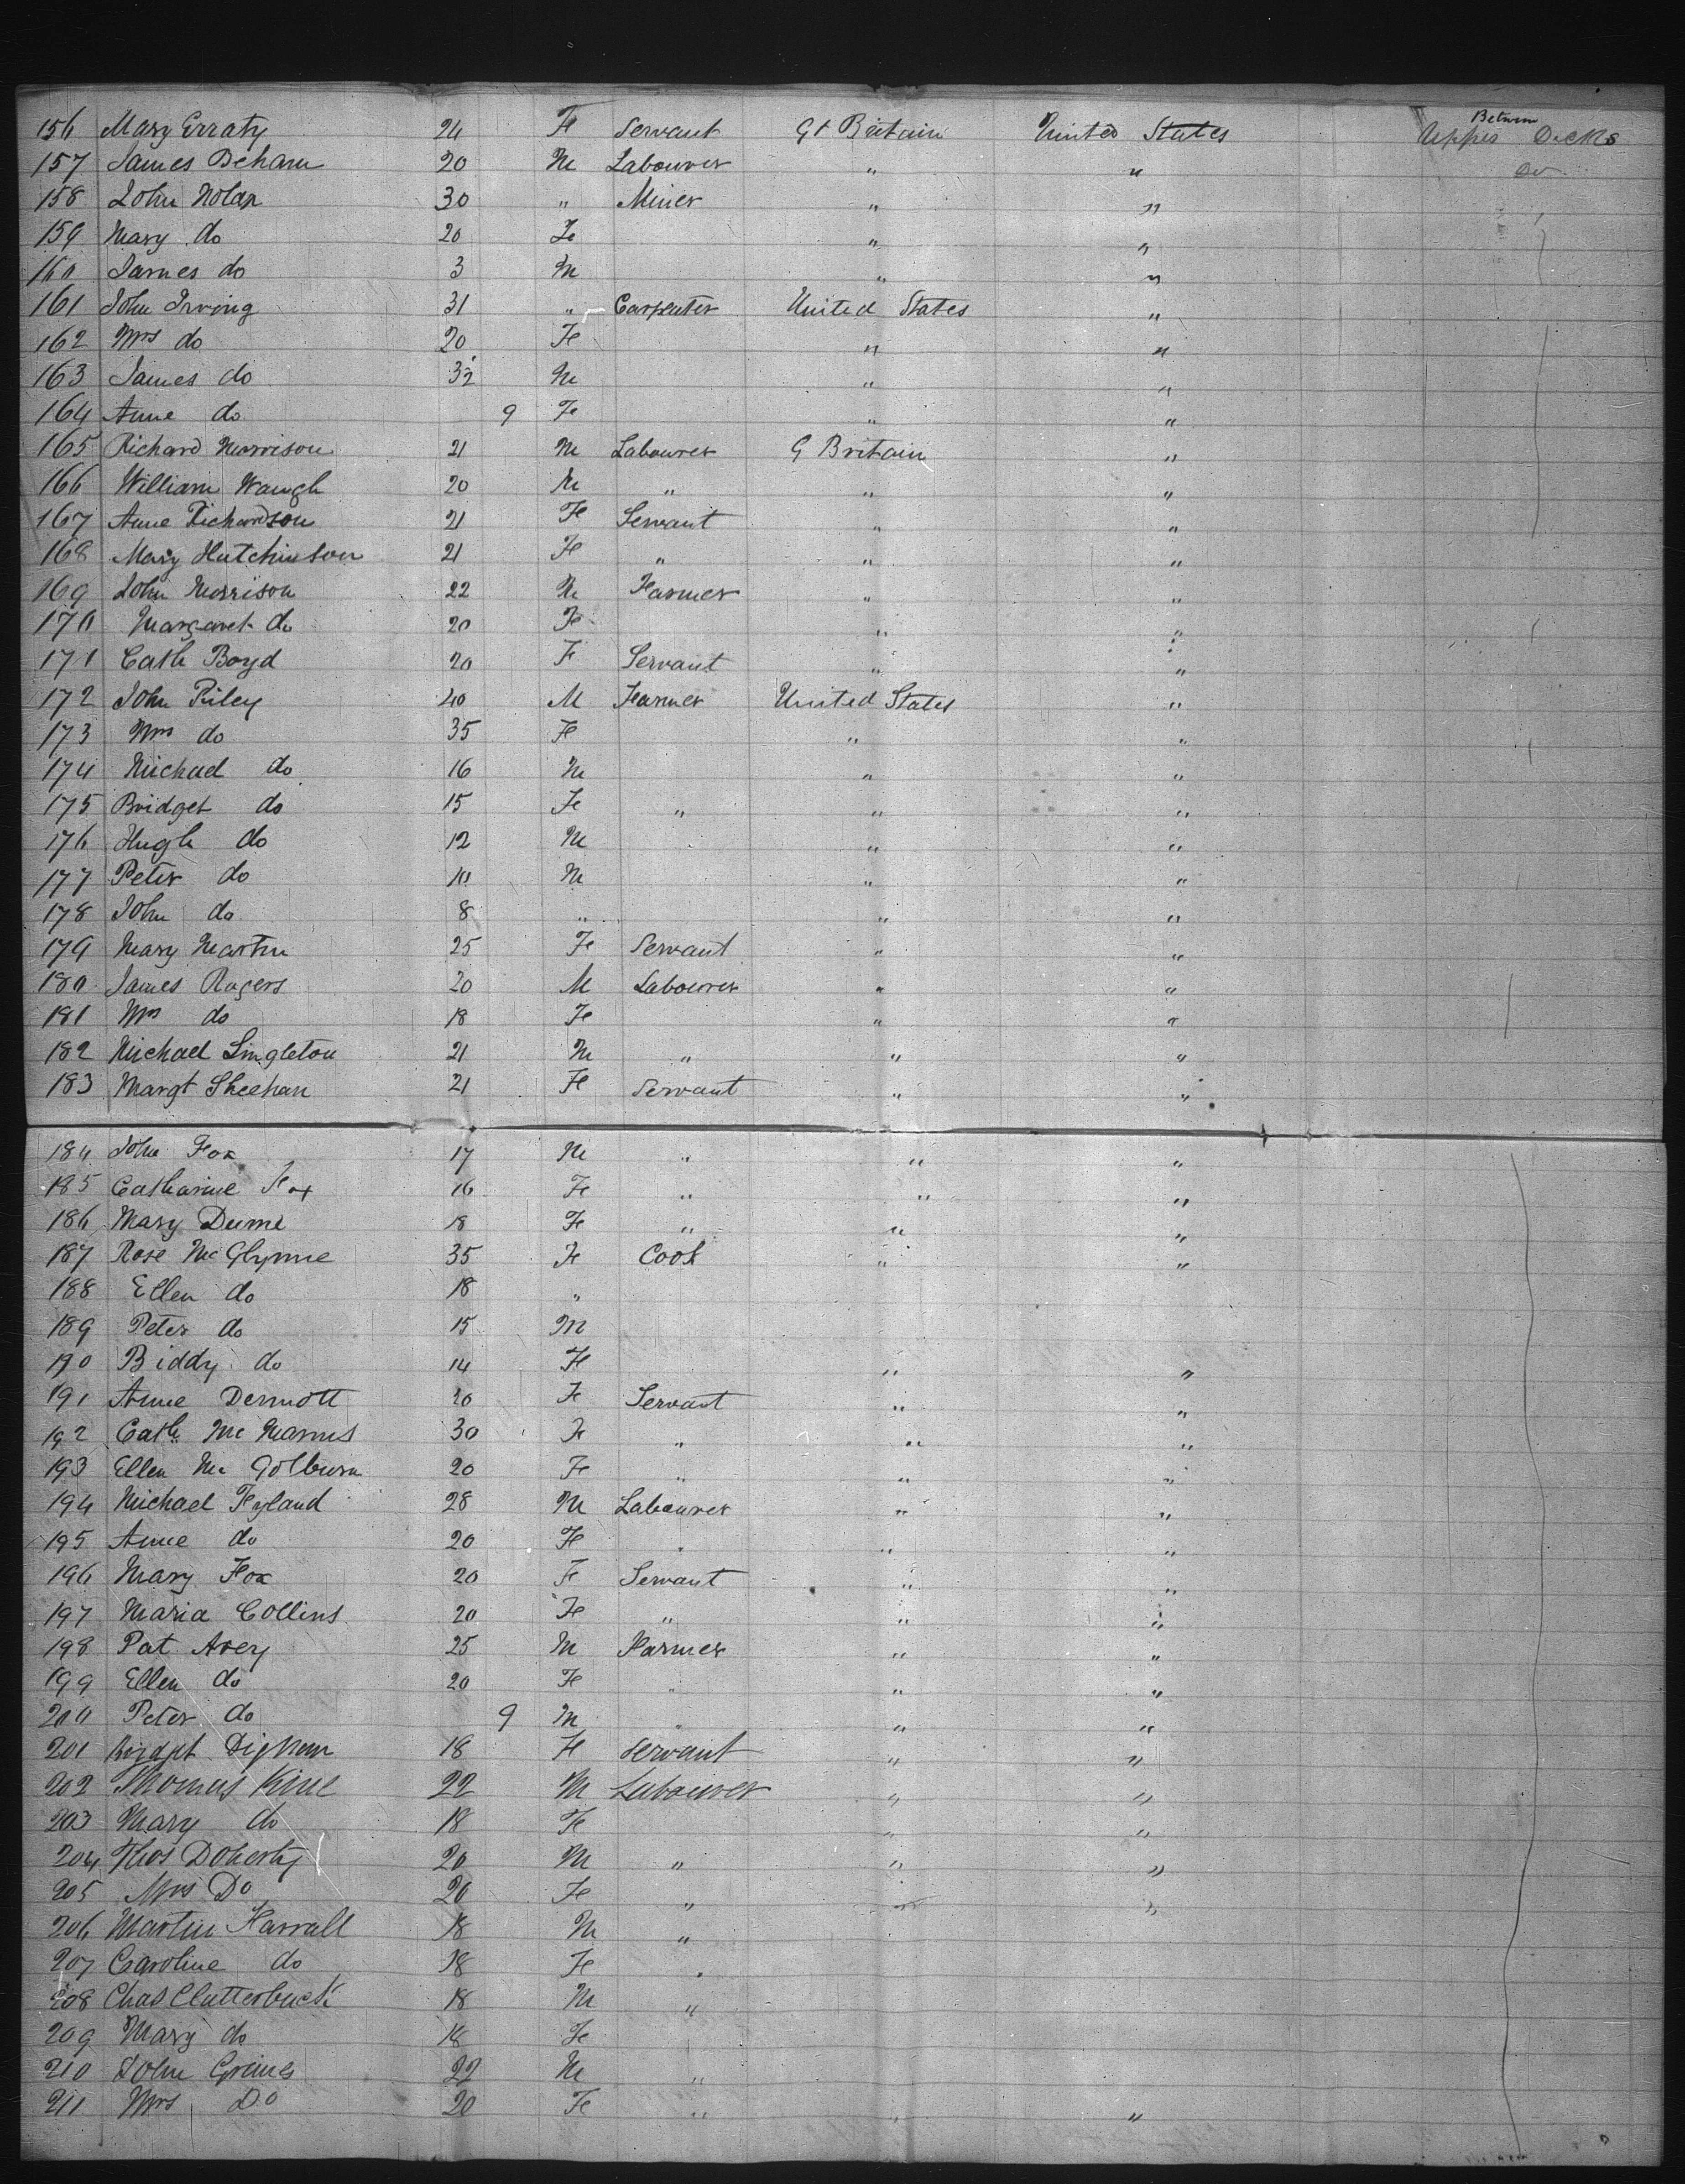 156 Mary Erraty 24 Fe Servant Gt Britain United States Upper Between Decks
157 James Beham 20 M Labourer " " Do
158 John Nolan 30 " Miner " "
159 Mary do 20 Fe " "
160 James do 3 M " "
161 John Irving 31 " Carpenter United States "
162 Mrs do 20 Fe " "
163 James do 3½ M " "
164 Anne do 9 Fe " "
165 Richard Morrison 21 M Labourer G Britain "
166 William Waugh 20 M " " "
167 Anne Richardson 21 Fe Servant " "
168 Mary Hutchinson 21 Fe " " "
169 John Morrison 22 M Farmer " "
170 Margaret do 20 Fe " "
171 Cath Boyd 20 F Servant " "
172 John Riley 40 M Farmer United States "
173 Mrs do 35 Fe " "
174 Michael do 16 M " "
175 Bridget do 15 Fe " " "
176 Hugh do 12 M " "
177 Peter do 10 M " "
178 John do 8 " " "
179 Mary Martin 25 Fe Servant " "
180 James Rogers 20 M Labourer " "
181 Mrs do 18 Fe " "
182 Michael Singleton 21 M " " "
183 Margt Sheehan 21 Fe Servant " "
184 John Fox 17 M " " "
185 Catharine Fox 16 Fe " " "
186 Mary Dunne 18 Fe " " "
187 Rose McGlynne 35 Fe Cook " "
188 Ellen do 18 "
189 Peter do 15 M
190 Biddy do 14 Fe " "
191 Anne Dermott 20 Fe Servant " "
192 Cath McManus 30 Fe " " "
193 Ellen Mc Golburn 20 Fe " " "
194 Michael Hyland 28 M Labourer " "
195 Anne do 20 Fe " " "
196 Mary Fox 20 F Servant " "
197 Maria Collins 20 Fe " " "
198 Pat Avery 25 M Farmer " "
199 Ellen do 20 Fe " " "
200 Peter do 9 M " " "
201 Bridget Dignan 18 Fe Servant " "
202 Thomas King 22 M Labourer " "
203 Mary do 18 Fe " "
204 Thos Doherty 20 M " " "
205 Mrs Do 20 Fe " " "
206 Martin Harrall 18 M "
207 Caroline do 18 Fe "
208 Chas Clutterbuck 18 M "
209 Mary do 18 Fe
210 John Grimes 22 M "
211 Mrs Do 20 Fe " " "